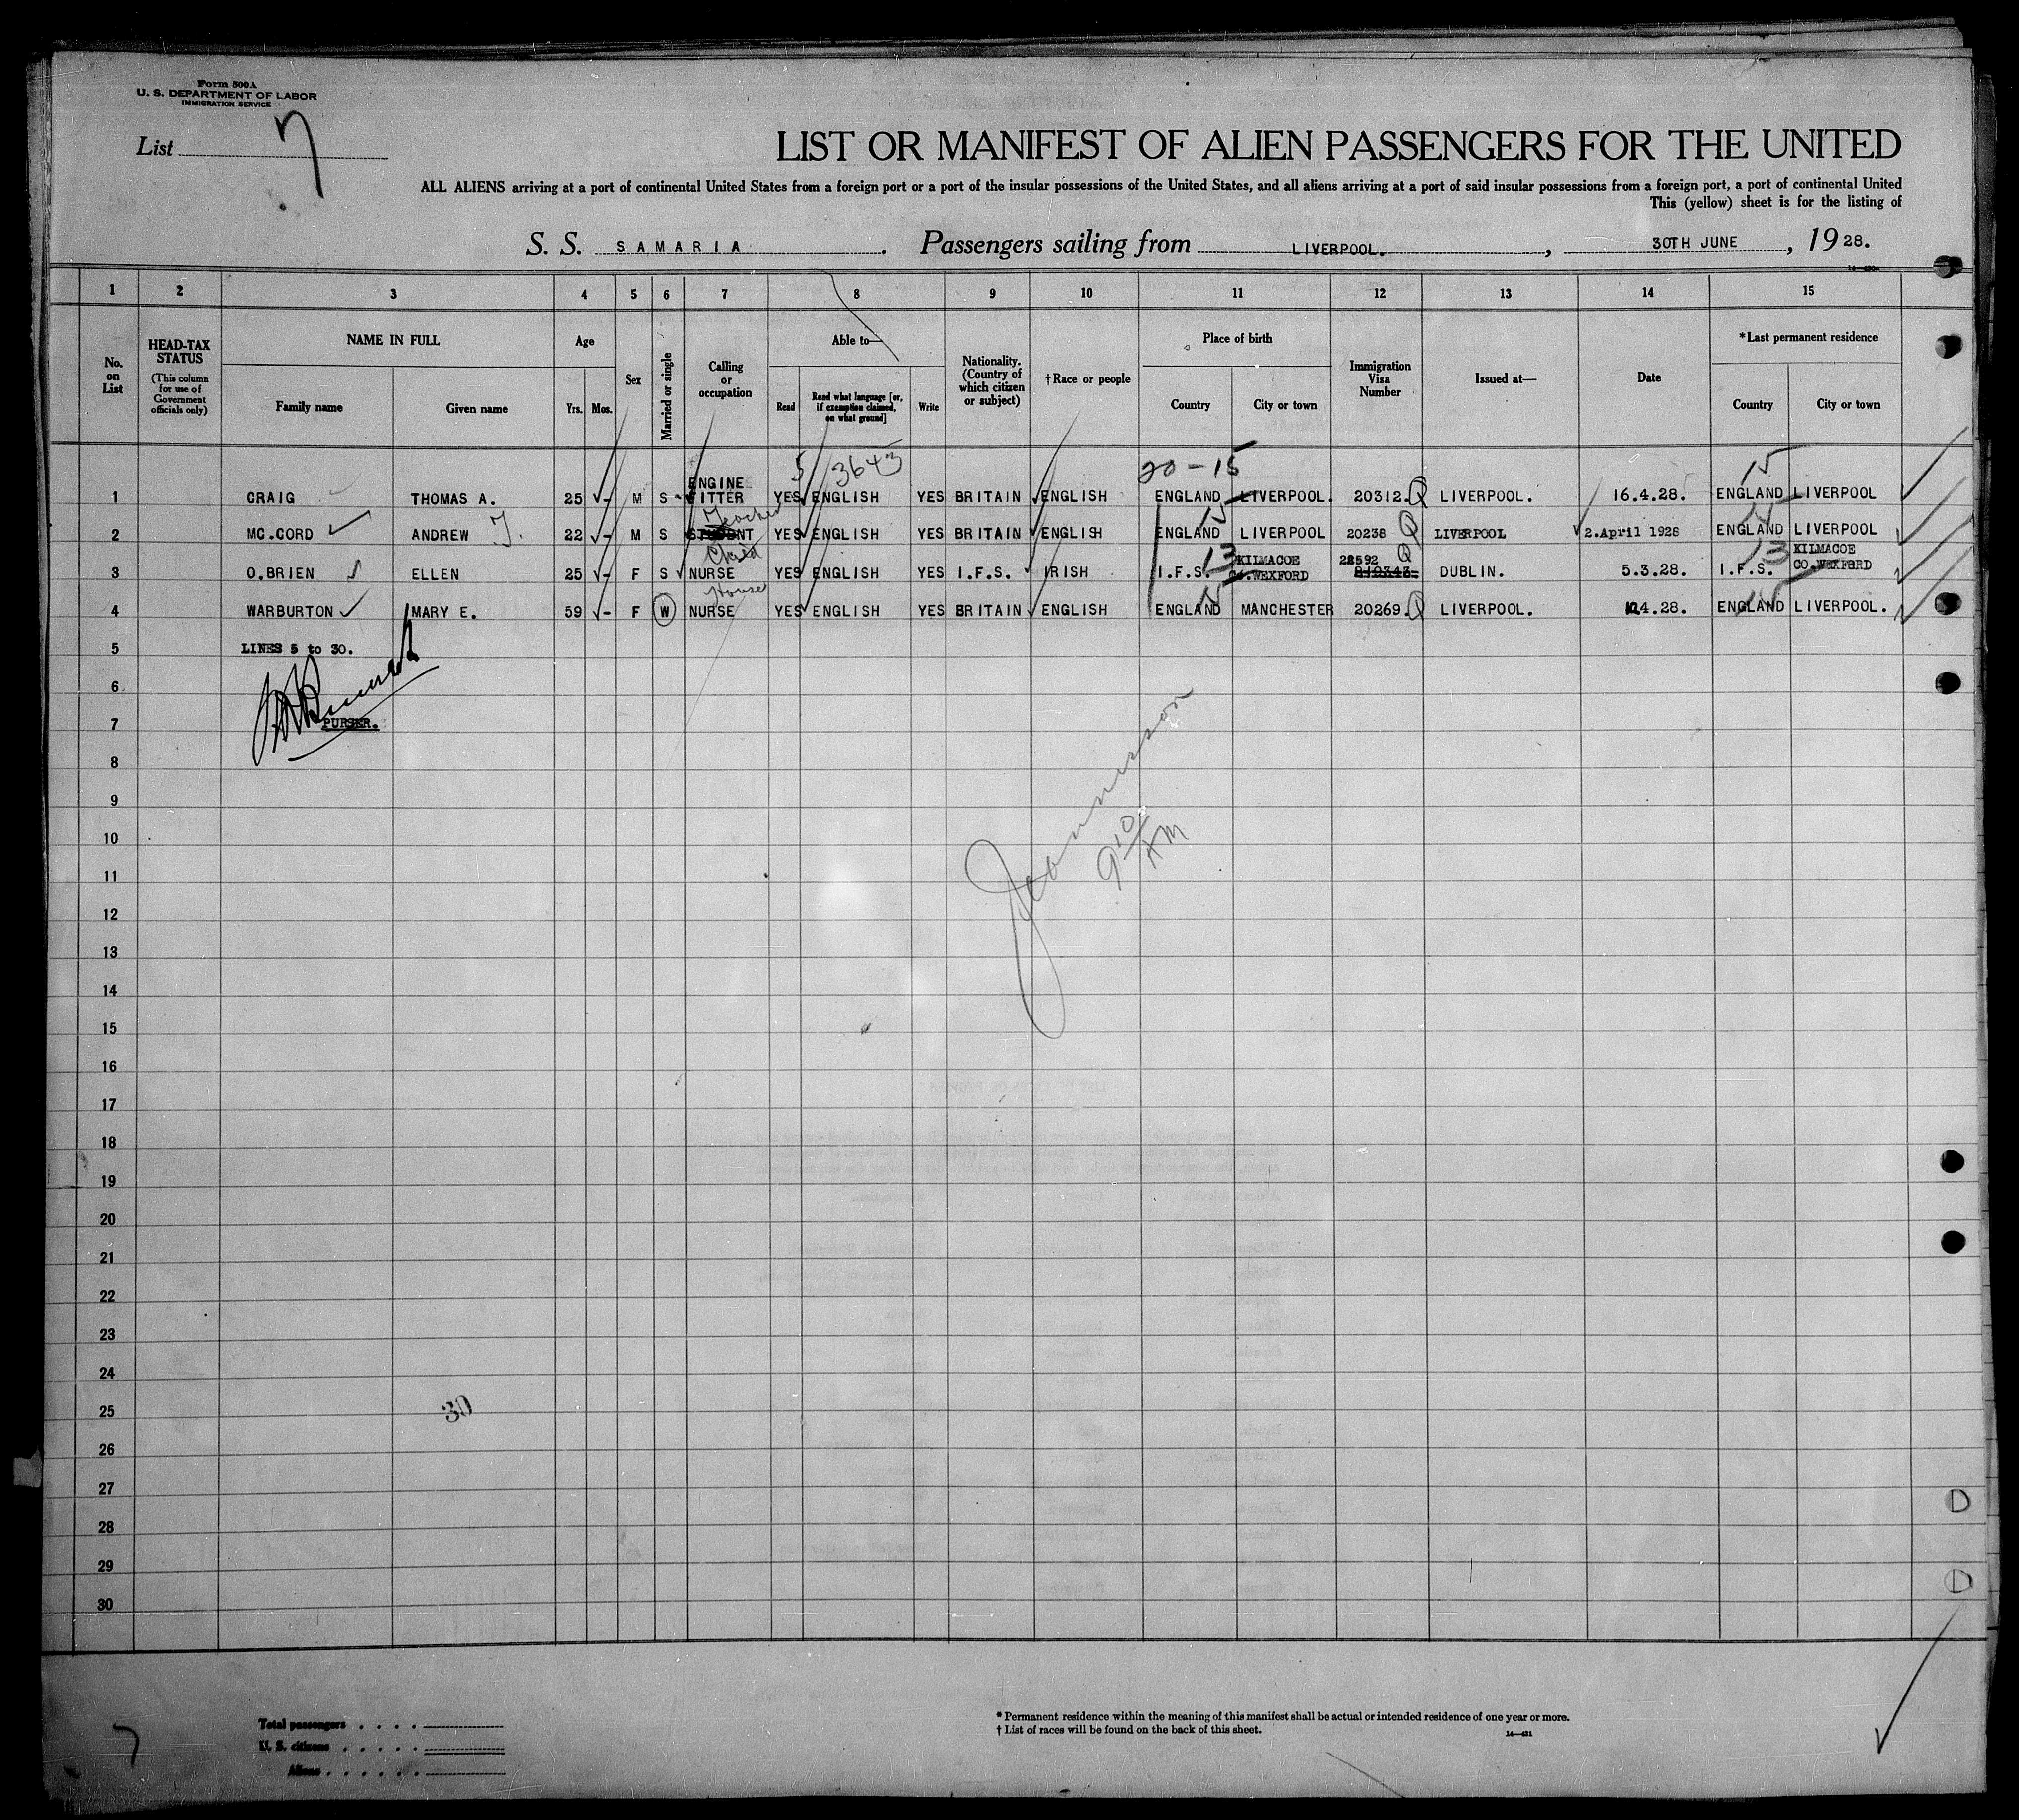 Form 500A
U. S. DEPARTMENT OF LABOR
IMMIGRATION SERVICE
List 7
LIST OR MANIFEST OF ALIEN PASSENGERS FOR THE UNITED
ALL ALIENS arriving at a port of continental United States from a foreign port or a port of the insular possessions of the United States, and all aliens arriving at a port of said insular possessions from a foreign port, a port of continental United
This (yellow) sheet is for the listing of
S. S. SAMARIA. Passengers sailing from LIVERPOOL., 30TH JUNE, 1928.
1 2 3 4 5 6 7 8 9 10 11 12 13 14 15
No. on List
HEAD-TAX STATUS
(This column for use of Government officials only)
NAME IN FULL
Family name Given name
Age
Yrs. Mos.
Sex
Married or single
Calling or occupation
Able to—
Read Read what language [or, if exemption claimed, on what ground] Write
Nationality. (Country of which citizen or subject)
†Race or people
Place of birth
Country City or town
Immigration Visa Number
Issued at—
Date
*Last permanent residence
Country City or town
5 3643 20-15 15
1 CRAIG THOMAS A. 25 - M S ENGINE FITTER YES ENGLISH YES BRITAIN ENGLISH ENGLAND LIVERPOOL. 20312. Q LIVERPOOL. 16.4.28. ENGLAND LIVERPOOL
2 MC.CORD ANDREW J. 22 - M S STUDENT Teacher YES ENGLISH YES BRITAIN ENGLISH ENGLAND 15 LIVERPOOL 20238 Q LIVERPOOL 2.April 1928 ENGLAND 15 LIVERPOOL
3 O.BRIEN ELLEN 25 - F S Child NURSE YES ENGLISH YES I.F.S. IRISH I.F.S. 13 KILMACOE CO.WEXFORD 22592 Q DUBLIN. 5.3.28. I.F.S. 13 KILMACOE CO.WEXFORD
4 WARBURTON MARY E. 59 - F W House NURSE YES ENGLISH YES BRITAIN ENGLISH ENGLAND 15 MANCHESTER 20269. Q LIVERPOOL. 4.28. ENGLAND 15 LIVERPOOL.
5 LINES 5 to 30.
6
7 PURSER.
8
9
10
9 10/AM
11
12
13
14
15
16
17
18
19
20
21
22
23
24
25
30
26
27
28
29
30
Total passengers
U. S. citizens
Aliens
* Permanent residence within the meaning of this manifest shall be actual or intended residence of one year or more.
† List of races will be found on the back of this sheet.
14—431
7